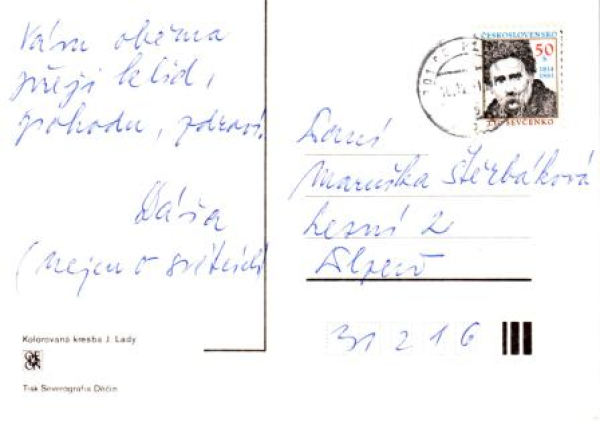 Vám oběma
přeji klid,
pohodu, zdraví.
Dáša
(nejen o svátcích)
Kolorovaná kresba J. Lady
Tisk Severografia Děčín
ČESKOSLOVENSKO
50
h
1814
1861
T.G. ŠEVČENKO
Paní
Maruška Štěrbáková
Lesní 2
31216